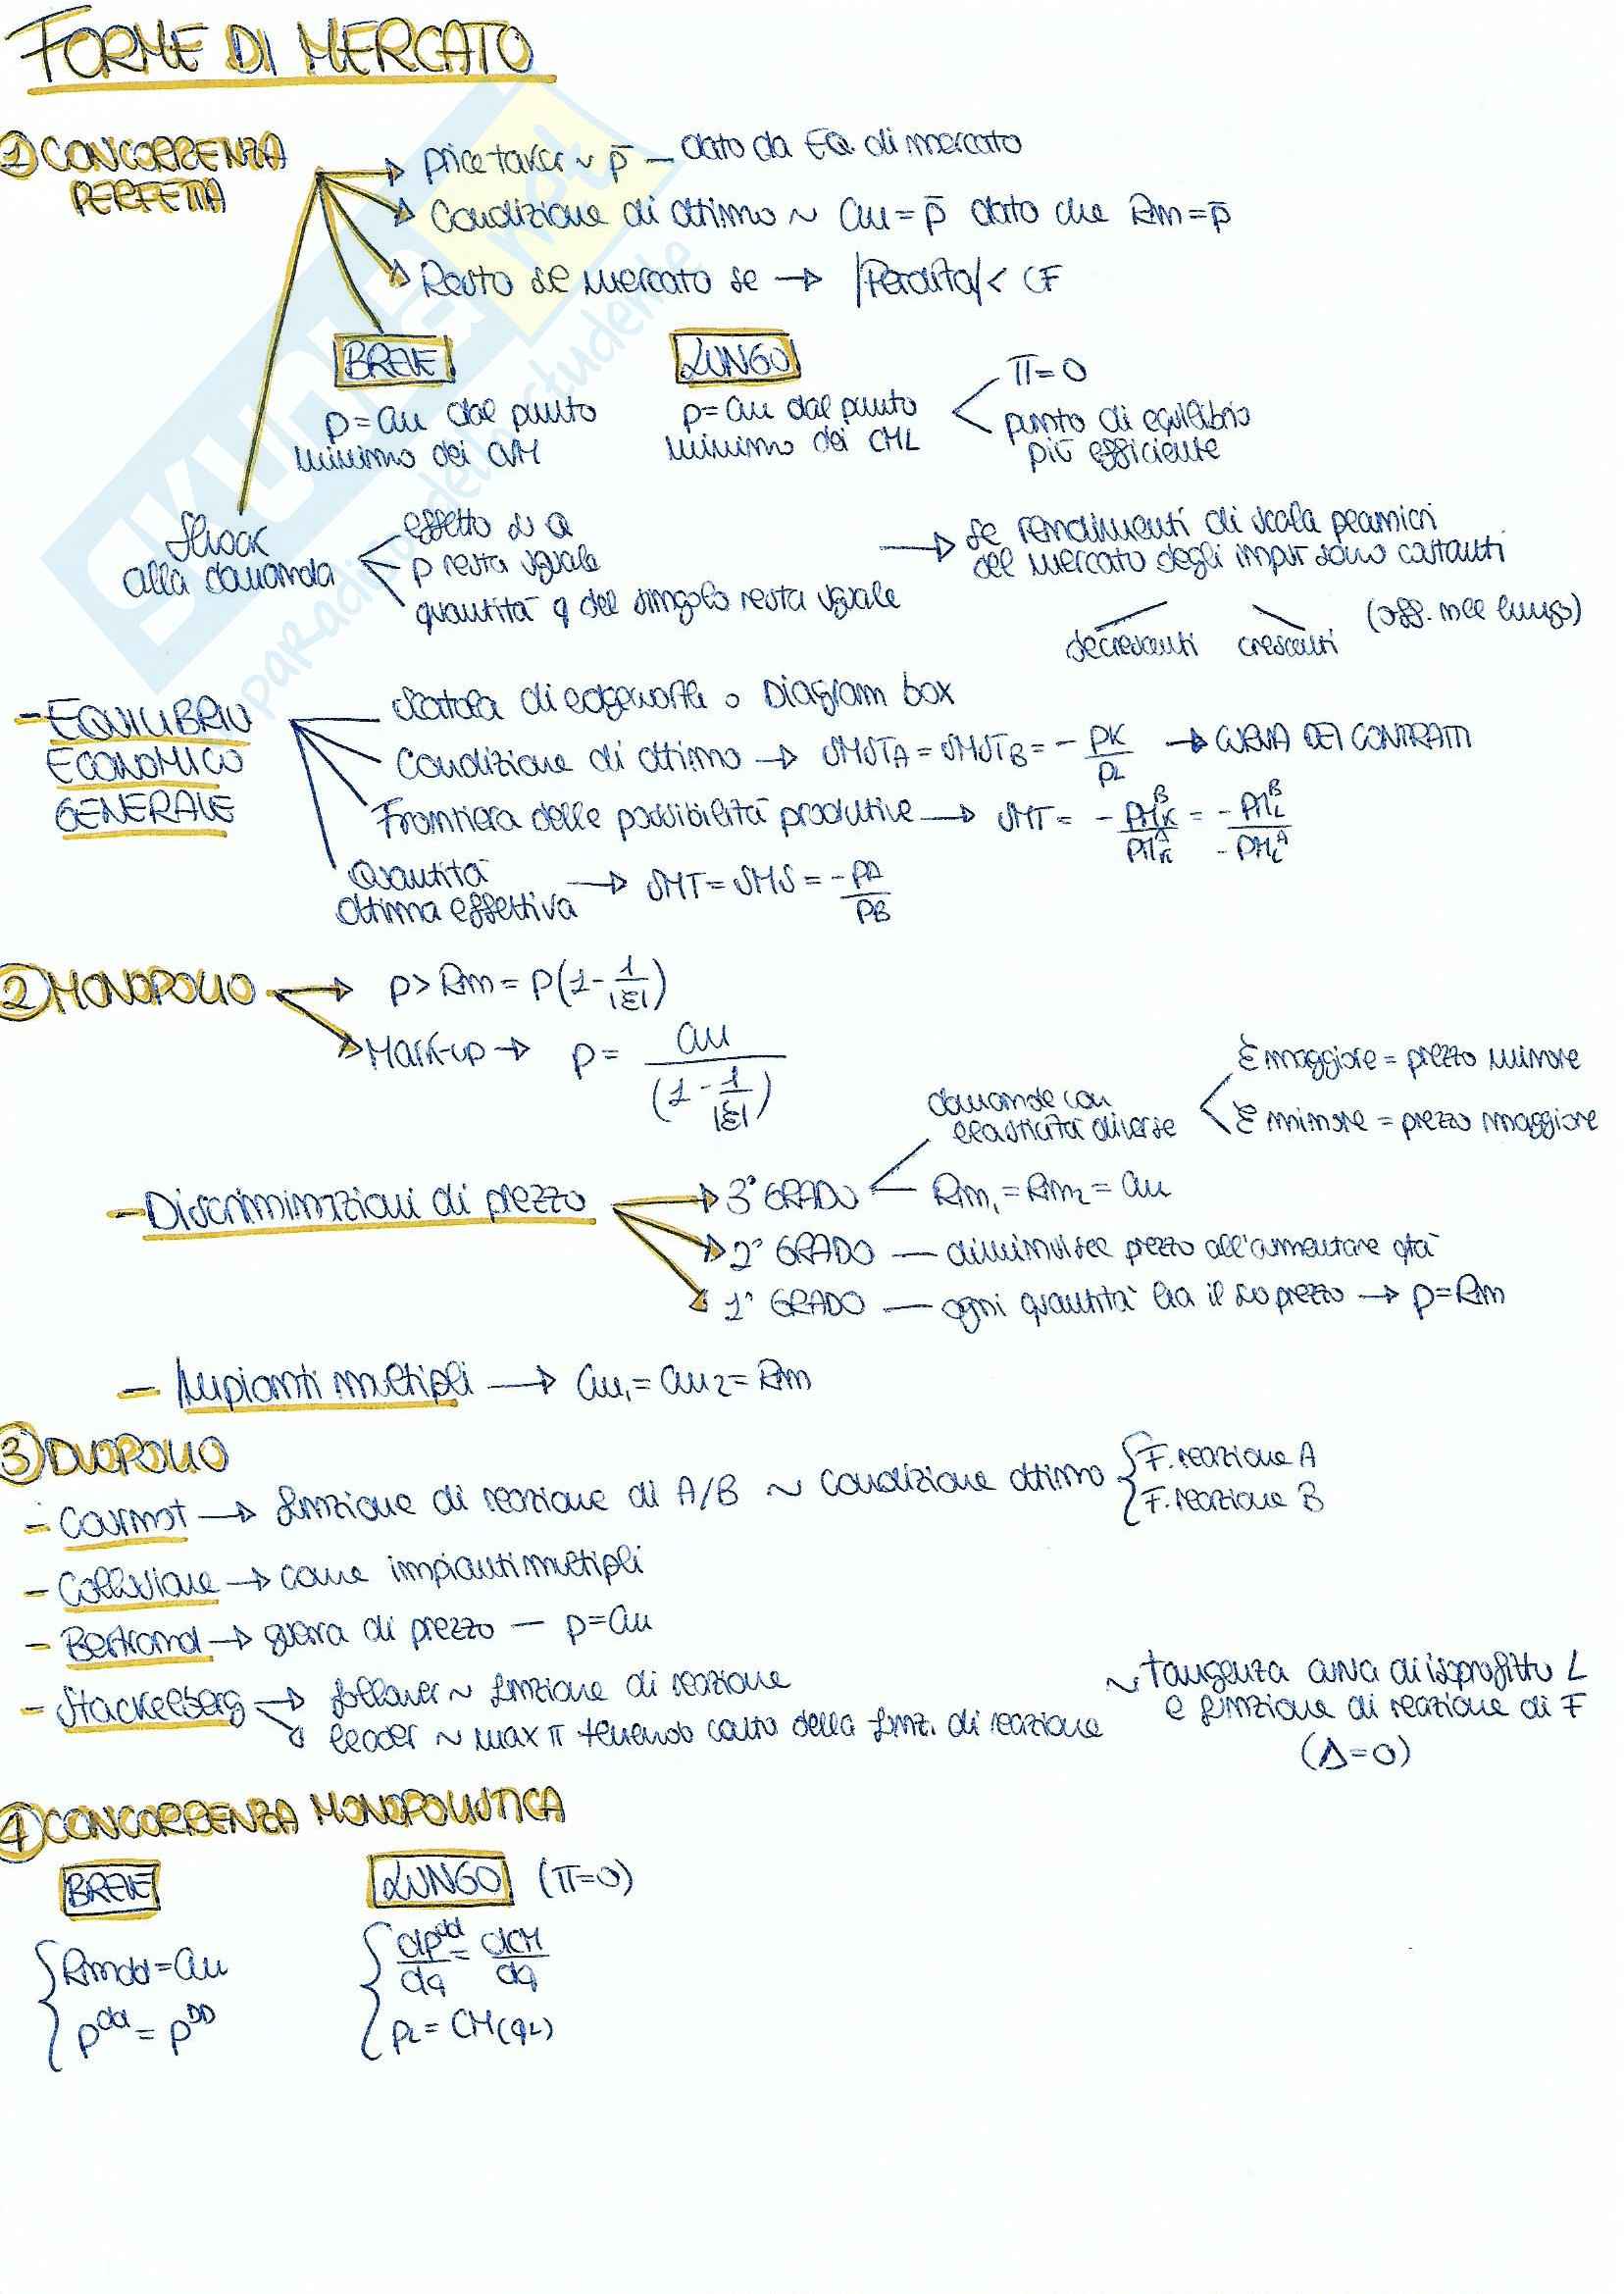 FORME DI MERCATO
① CONCORRENZA PERFETTA
→ price taker ~ p̄ — dato da EQ. di mercato
→ Condizione di ottimo ~ CM = p̄ dato che Rm = p̄
→ Resto sul mercato se → |Perdita| < CF
BREVE
p = CM dal punto
minimo dei CVM
LUNGO
p = CM dal punto
minimo dei CML
π = 0
punto di equilibrio
più efficiente
Shock
alla domanda
effetto su Q
p resta uguale
quantità q del singolo resta uguale
→ se rendimenti di scala
del mercato degli input sono costanti
decrescenti crescenti (off. nel lungo)
- EQUILIBRIO
ECONOMICO
GENERALE
Scatola di edgeworth o Diagram box
Condizione di ottimo → SMST_A = SMST_B = - PK/PL → CURVA DEI CONTRATTI
Frontiera delle possibilità produttive → SMT = - PM_K^B / PM_K^A = - PM_L^B / - PM_L^A
Quantità
ottima effettiva → SMT = SMS = - PA/PB
② MONOPOLIO → p > Rm = p(1 - 1/|ε|)
→ Mark-up → p = CM / (1 - 1/|ε|)
- Discriminazioni di prezzo
→ 3° GRADO
domande con
elasticità diverse
ε maggiore = prezzo minore
ε minore = prezzo maggiore
Rm₁ = Rm₂ = CM
→ 2° GRADO — diminuisce prezzo all'aumentare qtà
→ 1° GRADO — ogni quantità ha il suo prezzo → p = Rm
- Impianti multipli → CM₁ = CM₂ = Rm
③ DUOPOLIO
- Cournot → funzione di reazione di A/B ~ condizione ottimo { F. reazione A
F. reazione B
- Collusione → come impianti multipli
- Bertrand → guerra di prezzo — p = CM
- Stackelberg → follower ~ funzione di reazione
→ leader ~ max π tenendo conto della funz. di reazione
~ tangenza curva di isoprofitto L
e funzione di reazione di F
(Δ = 0)
④ CONCORRENZA MONOPOLISTICA
BREVE
{ Rmdd = CM
p^dd = p^DD
LUNGO (π = 0)
{ dp^dd/dq = dCM/dq
p_L = CM(q_L)
SKUOLA.net
paradiso dello studente